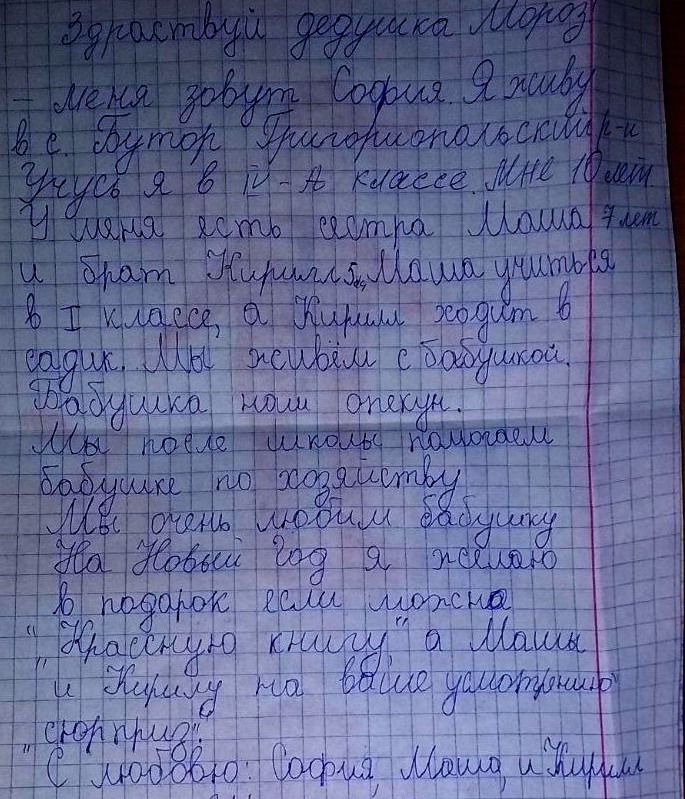 Здраствуй дедушка Мороз
- меня зовут София. Я живу
в с. Бутор Григориопольский р-н
Учусь я в IV-А классе. Мне 10 лет
У меня есть сестра Маша 7 лет
и брат Кирилл 5 Маша учиться
в I классе, а Кирилл ходит в
садик. Мы живём с бабушкой.
Бабушка наш опекун.
Мы после школы помогаем
бабушке по хозяйству
Мы очень любим бабушку
На Новый Год я желаю
в подарок если можно
"Красную книгу" а Машы
и Кирилу на ваше усмотрению
"сюрприз".
С любовю: София, Маша, и Кирилл